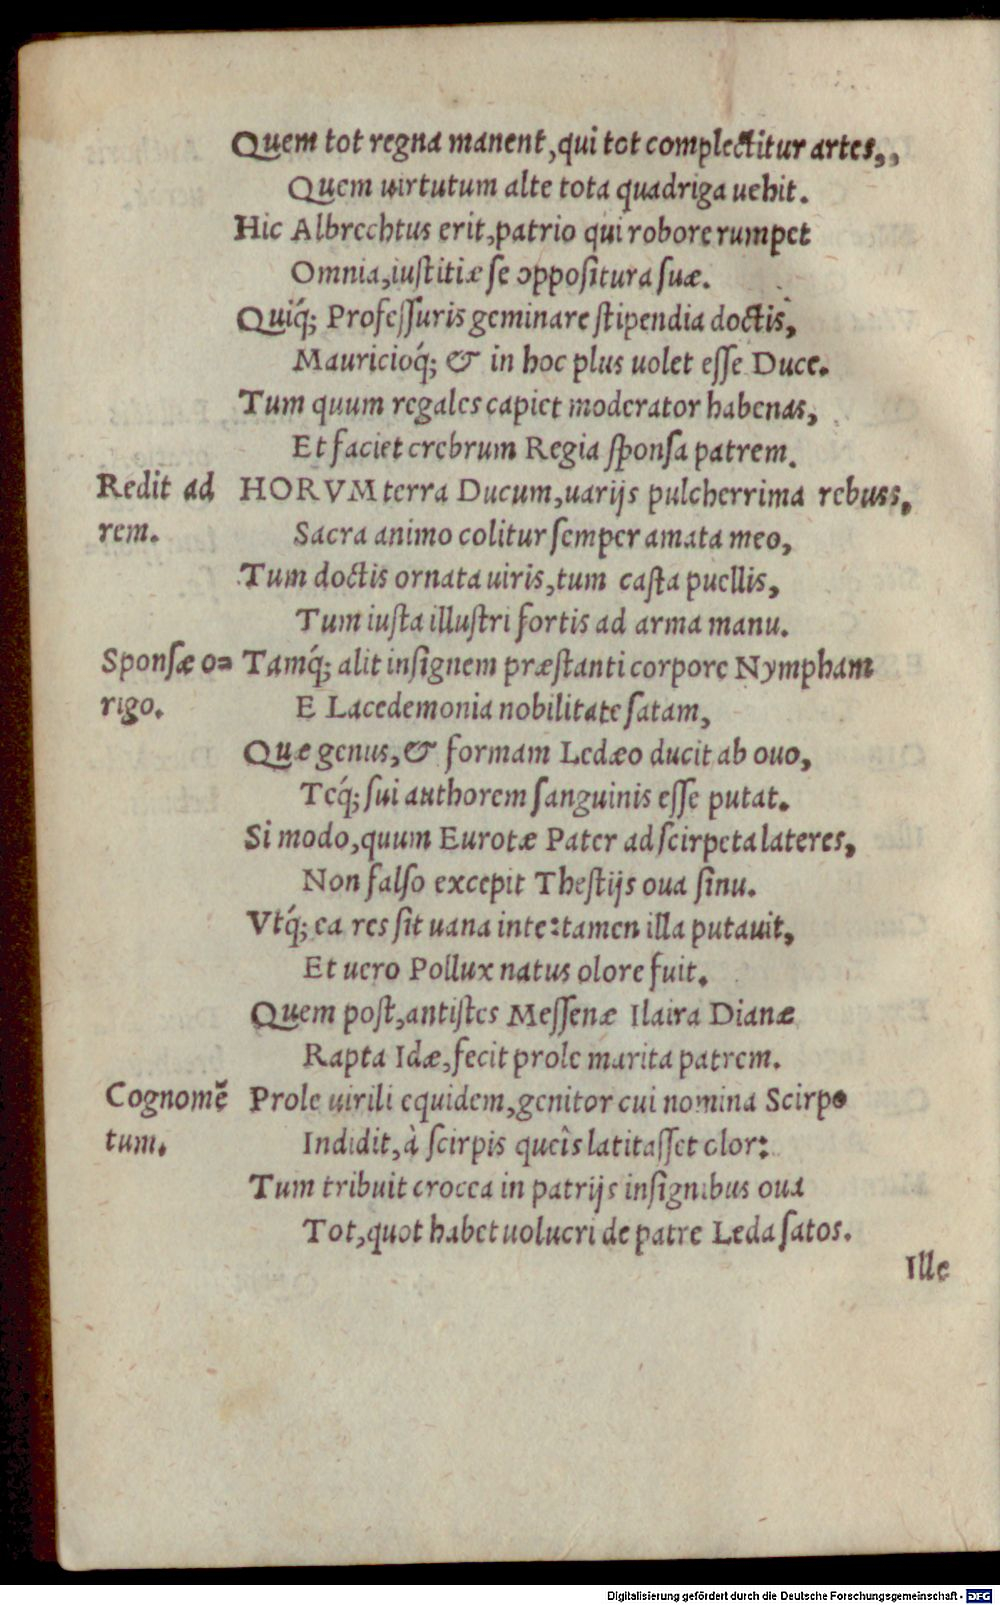 Quem tot regna manent, qui tot complectitur artes,,
Quem uirtutum alte tota quadriga uehit.
Hic Albrechtus erit, patrio qui robore rumpet
Omnia, iuſtitiæ ſe oppoſitura ſuæ.
Quiq́; Profeſſuris geminare ſtipendia doctis,
Mauricioq́; & in hoc plus uolet eſſe Duce.
Tum quum regales capiet moderator habenas,
Et faciet crebrum Regia ſponſa patrem.
Redit ad HORVM terra Ducum, uarijs pulcherrima rebuss,
rem. Sacra animo colitur ſemper amata meo,
Tum doctis ornata uiris, tum caſta puellis,
Tum iuſta illuſtri fortis ad arma manu.
Sponſæ o= Tamq́; alit inſignem præſtanti corpore Nympham
rigo. E Lacedemonia nobilitate ſatam,
Quæ genus, & formam Ledæo ducit ab ouo,
Teq́; ſui authorem ſanguinis eſſe putat.
Si modo, quum Eurotæ Pater ad ſcirpeta lateres,
Non falſo excepit Theſtijs oua ſinu.
Vtq́; ea res ſit uana in te: tamen illa putauit,
Et uero Pollux natus olore fuit.
Quem poſt, antiſtes Meſſenæ Ilaira Dianæ
Rapta Idæ, fecit prole marita patrem.
Cognomẽ Prole uirili equidem, genitor cui nomina Scirpo
tum. Indidit, à ſcirpis queîs latitaſſet olor:
Tum tribuit crocea in patrijs inſignibus oua
Tot, quot habet uolucri de patre Leda ſatos.
Ille
Digitalisierung gefördert durch die Deutsche Forschungsgemeinschaft - DFG